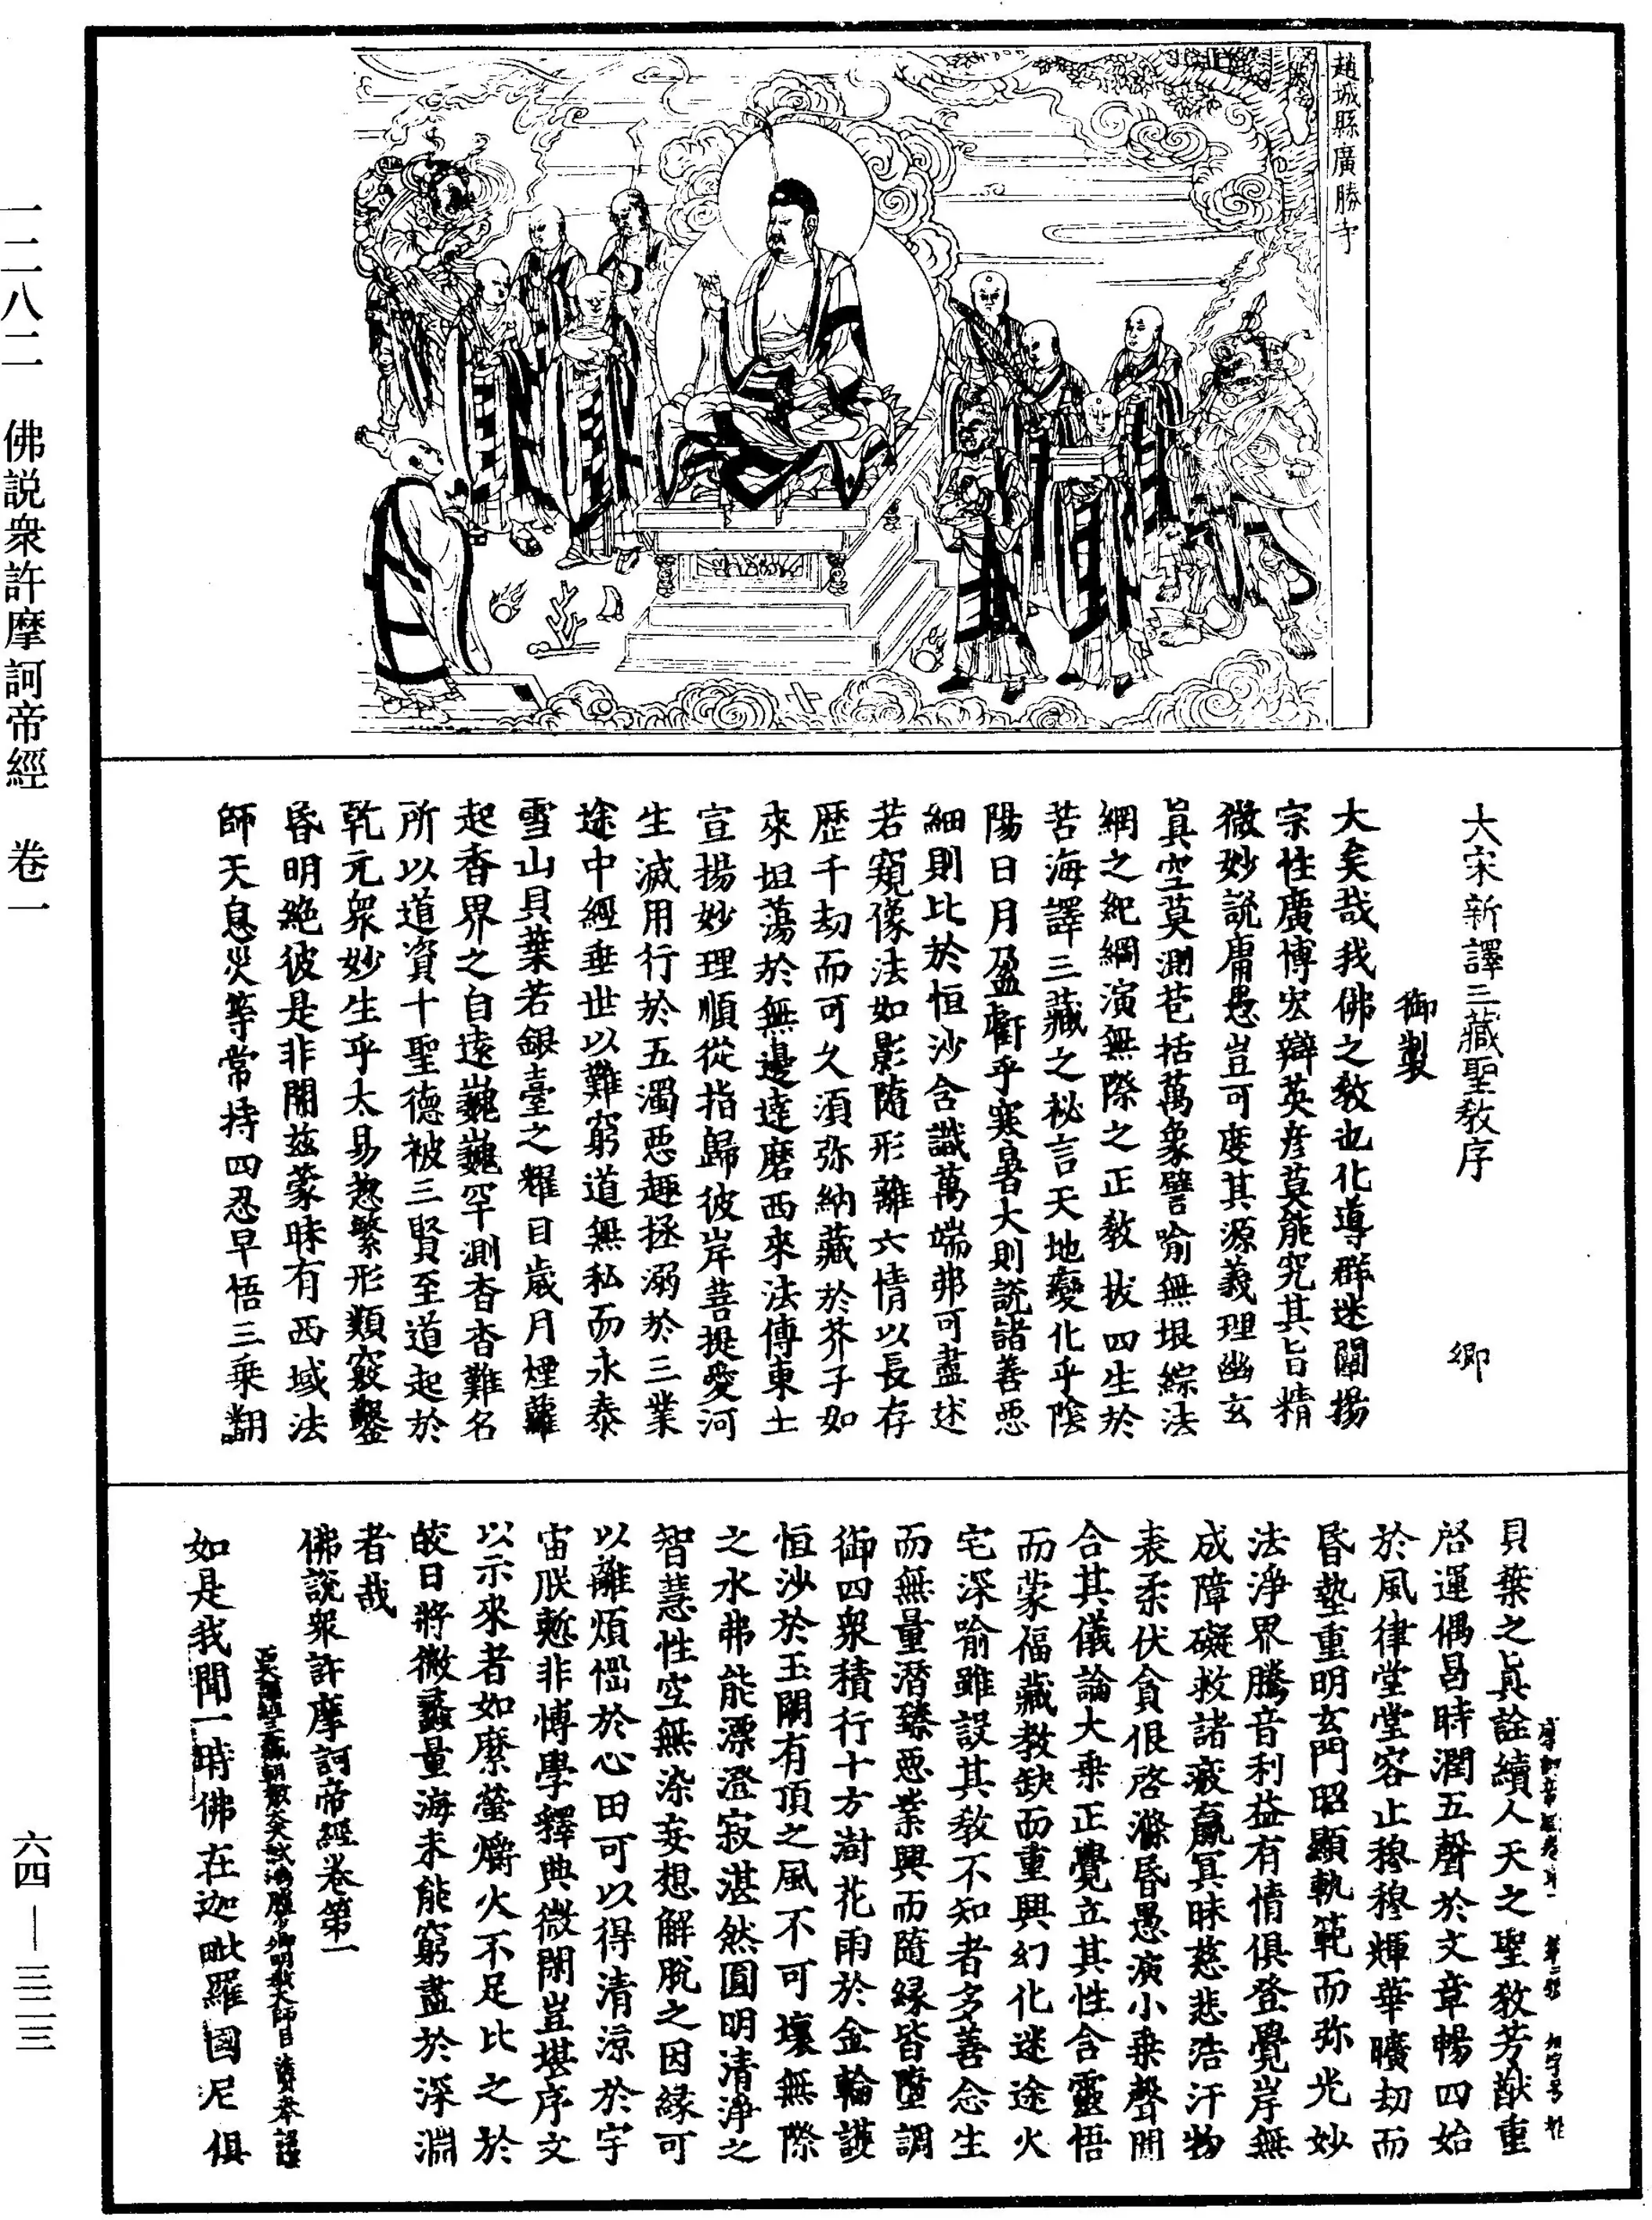 趙城縣廣勝寺
大宋新譯三藏聖教序 卿
御製
大矣哉我佛之教也化導群迷闡揚
宗性廣博宏辯英彦莫能究其旨精
微妙說庸愚豈可度其源義理幽玄
真空莫測苞括萬象譬喻無垠綜法
網之紀綱演無際之正教拔四生於
苦海譯三藏之秘言天地變化乎陰
陽日月盈虧乎寒暑大則說諸善惡
細則比於恒沙含識萬端弗可盡述
若窺像法如影隨形離六情以長存
歷千劫而可久須弥納藏於芥子如
來坦蕩於無邊達磨西來法傳東土
宣揚妙理順從指歸彼岸菩提愛河
生滅用行於五濁惡趣拯溺於三業
途中經垂世以難窮道無私而永泰
雪山貝葉若銀臺之耀目歲月煙蘿
起香界之自遠巍巍罕測杳杳難名
所以道資十聖德被三賢至道起於
乾元衆妙生乎太易惣繁形類窾鑿
昏明絶彼是非開茲蒙昧有西域法
師天息災等常持四忍早悟三乘翻
貝葉之真詮續人天之聖教芳猷重
啓運偶昌時潤五聲於文章暢四始
於風律堂堂容止穆穆輝華曠劫而
昏墊重明玄門昭顯軌範而弥光妙
法淨界騰音利益有情俱登覺岸無
成障礙救諸疲羸冥昧慈悲浩汗物
表柔伏貪佷啓滌昏愚演小乘聲聞
合其儀論大乘正覺立其性含靈悟
而蒙福藏教缺而重興幻化迷途火
宅深喻雖設其教不知者多善念生
而無量潛臻惡業興而隨緣皆墮調
御四衆積行十方澍花雨於金輪護
恒沙於玉闕有頂之風不可壞無際
之水弗能漂澄寂湛然圓明清淨之
智慧性空無染妄想解脫之因緣可
以離煩惱於心田可以得清涼於宇
宙朕慙非博學釋典微閑豈堪序文
以示來者如縻螢爝火不足比之於
皎日將微蠡量海未能窮盡於深淵
者哉
佛說衆許摩訶帝經卷第一
如是我聞一時佛在迦毗羅國尼俱
一二八二 佛説衆許摩訶帝經 卷一
六四—三二三